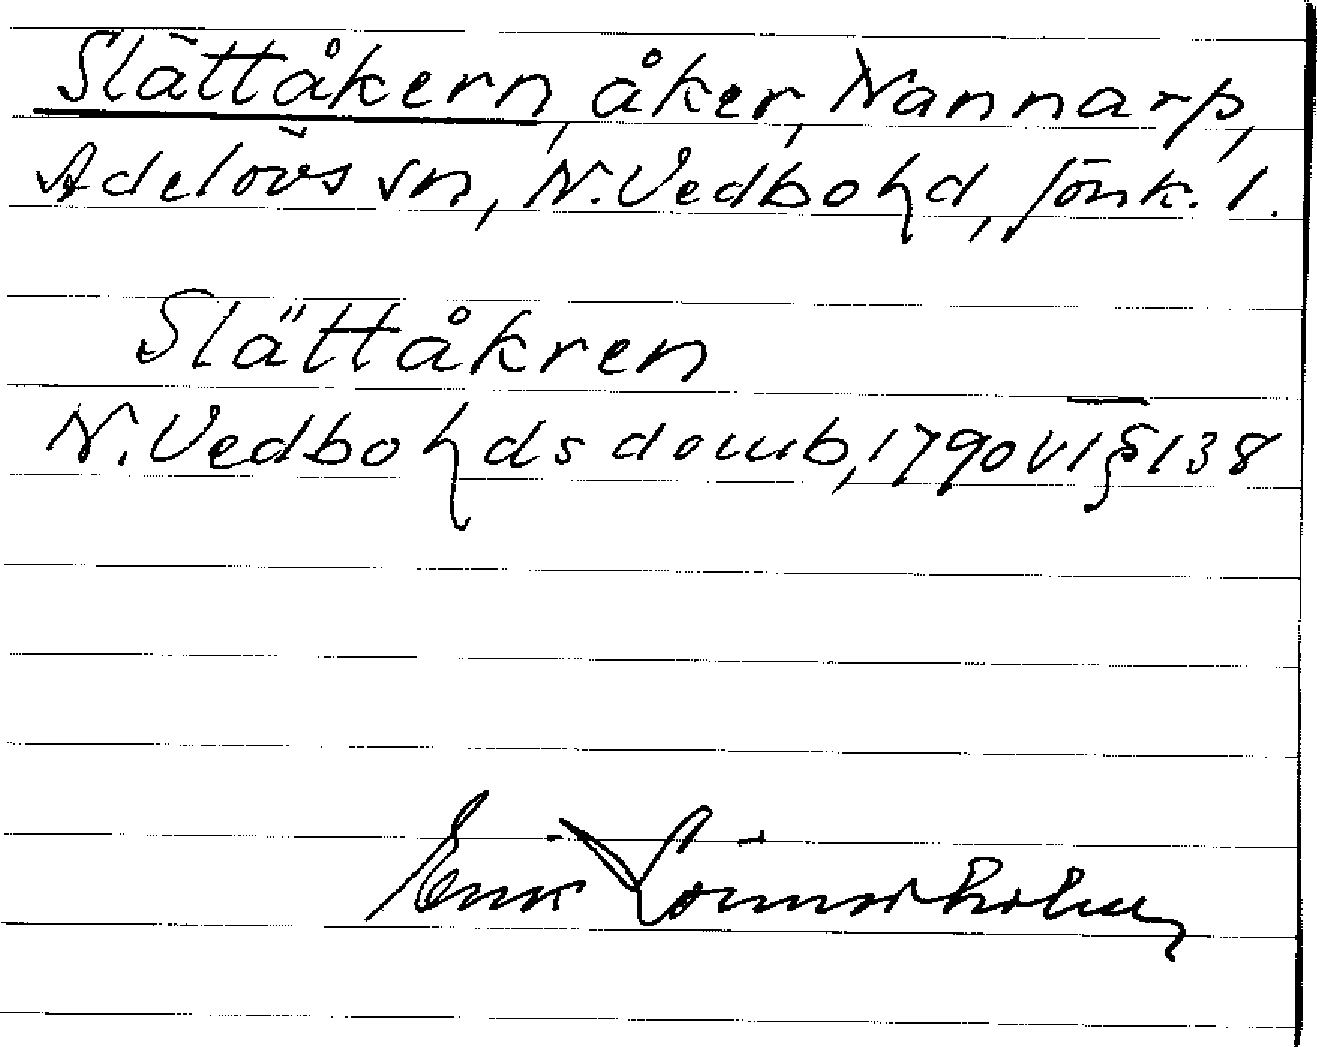 Slättåkern, åker, Nannarp,
Adelövs sn, N. Vedbo hd, Jönk. l.
Slättåkren
N. Vedbo hds domb, 1790 VI § 138
Erik